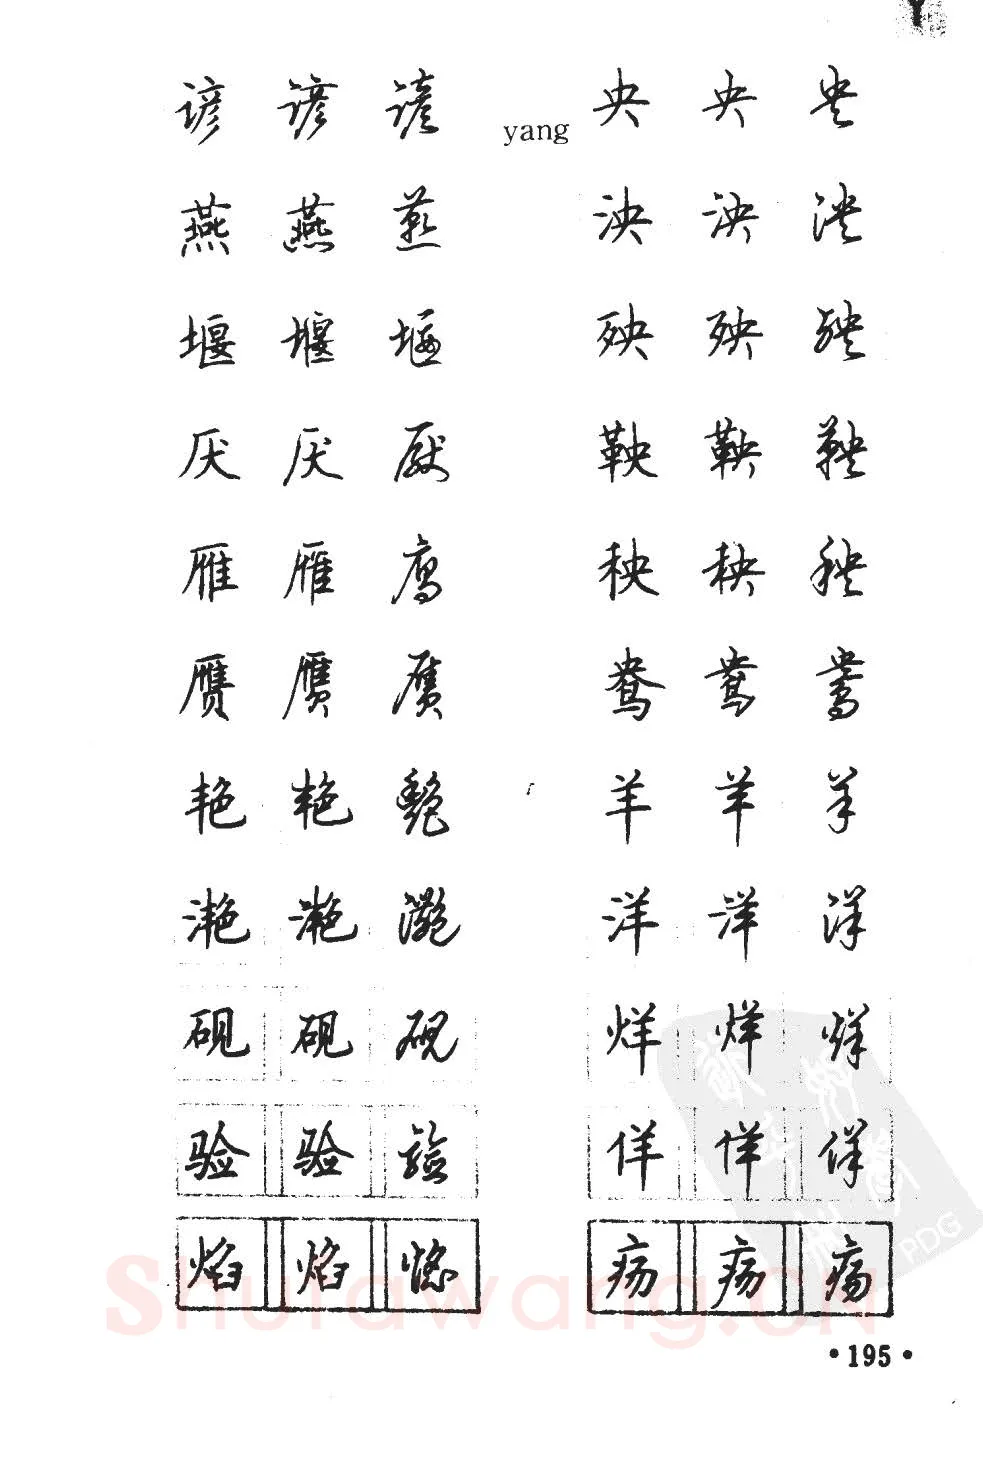 Y
谚 谚 谚
燕 燕 燕
堰 堰 堰
厌 厌 厌
雁 雁 雁
赝 赝 赝
艳 艳 艳
滟 滟 滟
砚 砚 砚
验 验 验
焰 焰 焰
yang
央 央 央
泱 泱 泱
殃 殃 殃
鞅 鞅 鞅
秧 秧 秧
鸯 鸯 鸯
羊 羊 羊
洋 洋 洋
烊 烊 烊
佯 佯 佯
疡 疡 疡
PDG
shufawang.cn
·195·